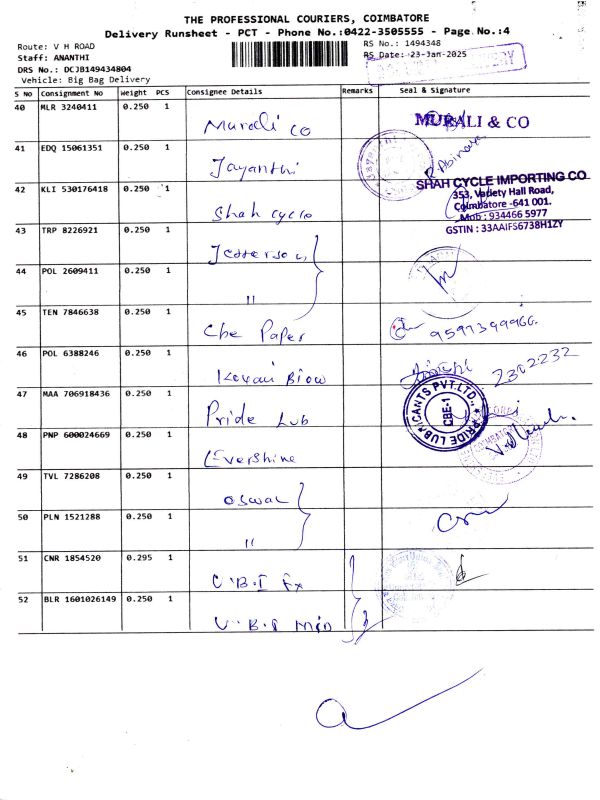 THE PROFESSIONAL COURIERS, COIMBATORE
Delivery Runsheet - PCT - Phone No.:0422-3505555 - Page No.:4
Route: V H ROAD
RS No.: 1494348
Staff: ANANTHI
RS Date: 23-Jan-2025
DRS No.: DCJB149434804
Vehicle: Big Bag Delivery
S NO Consignment No Weight PCS Consignee Details Remarks Seal & Signature
40 MLR 3240411 0.250 1
Murali Co
MURALI & CO
41 EDQ 15061351 0.250 1
Jayanthi
R. Abinaya
42 KLI 530176418 0.250 1
Shah cyclo
SHAH CYCLE IMPORTING CO
353, Variety Hall Road,
Coimbatore -641 001.
Mob : 934466 5977
GSTIN : 33AAIFS6738H1ZY
43 TRP 8226921 0.250 1
44 POL 2609411 0.250 1
"
45 TEN 7846638 0.250 1
Cbe Paper
46 POL 6388246 0.250 1
2302232
47 MAA 706918436 0.250 1
Pride Lub
PRIDE LUBRICANTS PVT.LTD.,
CBE-1
48 PNP 600024669 0.250 1
Evershine
49 TVL 7286208 0.250 1
oswal
50 PLN 1521288 0.250 1
"
51 CNR 1854520 0.295 1
U.B.I Fx
52 BLR 1601026149 0.250 1
U.B.I Main